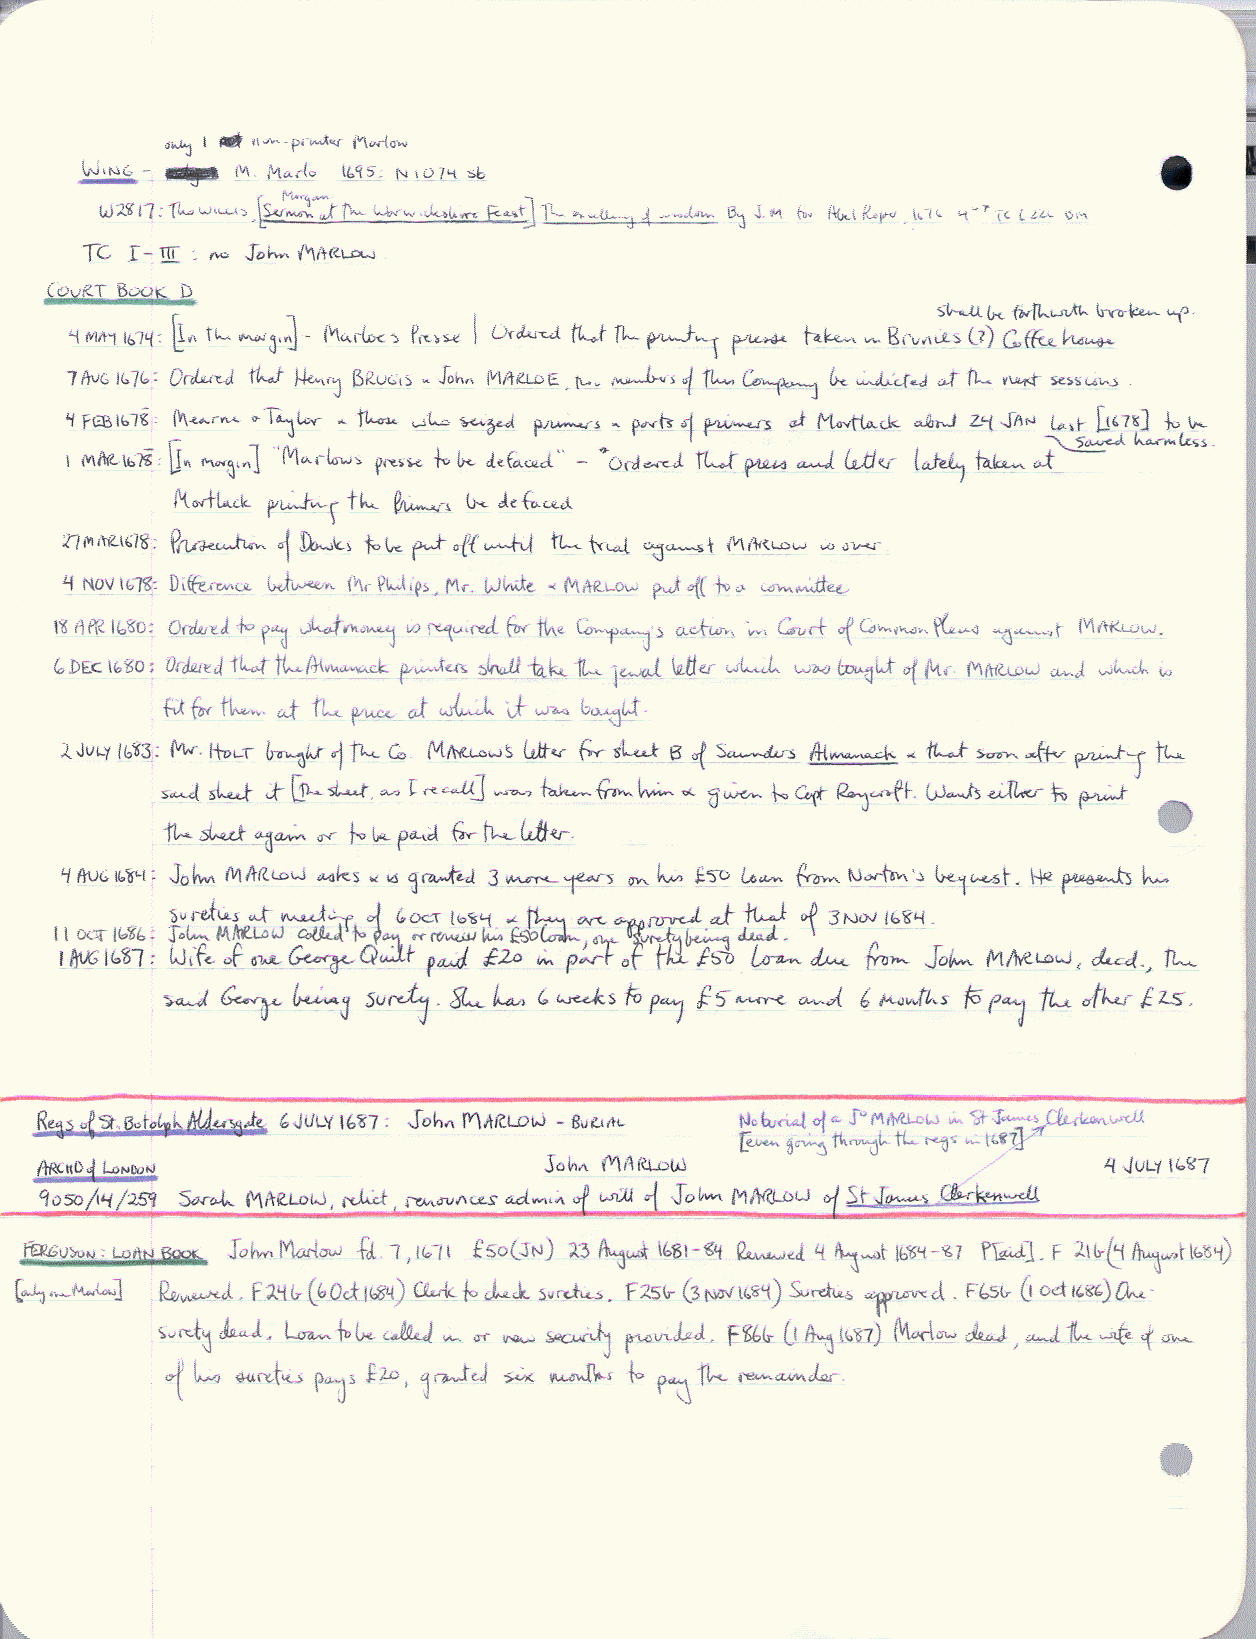 only 1 non-printer Marlow
WING - M. Marlo 1695: N1074 sb
Morgan
W2817: Tho Willis, [Sermon at the Warwickshire Feast] The excellency of wisdom By J.M for Abel Roper, 1676 4-° TC I 222 BM
TC I-III : no John MARLOW
COURT BOOK D
shall be forthwith broken up.
4 MAY 1674: [In the margin] - Marloe's Presse | Ordered that the printing presse taken in Brunies (?) Coffee house
7 AUG 1676: Ordered that Henry BRUGIS & John MARLOE, two members of this Company be indicted at the next sessions.
4 FEB 1678: Mearne & Taylor & those who seized primers & parts of primers at Mortlack about 24 JAN last [1678] to be
saved harmless.
1 MAR 1678: [In margin] "Marlows presse to be defaced" - "Ordered that press and letter lately taken at
Mortlack printing the Primers be defaced
27 MAR 1678: Prosecution of Dawks to be put off until the trial against MARLOW is over
4 NOV 1678: Difference between Mr Philips, Mr. White & MARLOW put off to a committee
18 APR 1680: Ordered to pay what money is required for the Company's action in Court of Common Pleas against MARLOW.
6 DEC 1680: Ordered that the Almanack printers shall take the jewal letter which was bought of Mr. MARLOW and which is
fit for them at the price at which it was bought.
2 JULY 1683: Mr. HOLT bought of the Co. MARLOW'S letter for sheet B of Saunders Almanack & that soon after printing the
said sheet it [the sheet, as I recall] was taken from him & given to Capt Roycroft. Wants either to print
the sheet again or to be paid for the letter.
4 AUG 1684: John MARLOW askes & is granted 3 more years on his £50 loan from Norton's bequest. He presents his
sureties at meeting of 6 OCT 1684 & they are approved at that of 3 NOV 1684.
11 OCT 1686: John MARLOW called to pay or renew his £50 loan, one surety being dead.
1 AUG 1687: Wife of one George Quilt paid £20 in part of the £50 loan due from John MARLOW, decd., the
said George being surety. She has 6 weeks to pay £5 more and 6 months to pay the other £25.
Regs of St. Botolph Aldersgate 6 JULY 1687: John MARLOW - BURIAL
No burial of a Jº MARLOW in St James Clerkenwell
[even going through the regs in 1687]
ARCHD of LONDON John MARLOW 4 JULY 1687
9050/14/259 Sarah MARLOW, relict, renounces admin of will of John MARLOW of St James Clerkenwell
FERGUSON: LOAN BOOK John Marlow fd. 7, 1671 £50 (JN) 23 August 1681-84 Renewed 4 August 1684-87 P[aid]. F 21b (4 August 1684)
[only one Marlow] Renewed. F24b (6 Oct 1684) Clerk to check sureties. F25b (3 Nov 1684) Sureties approved. F65b (1 Oct 1686) One
surety dead. Loan to be called in or new security provided. F86b (1 Aug 1687) Marlow dead, and the wife of one
of his sureties pays £20, granted six months to pay the remainder.